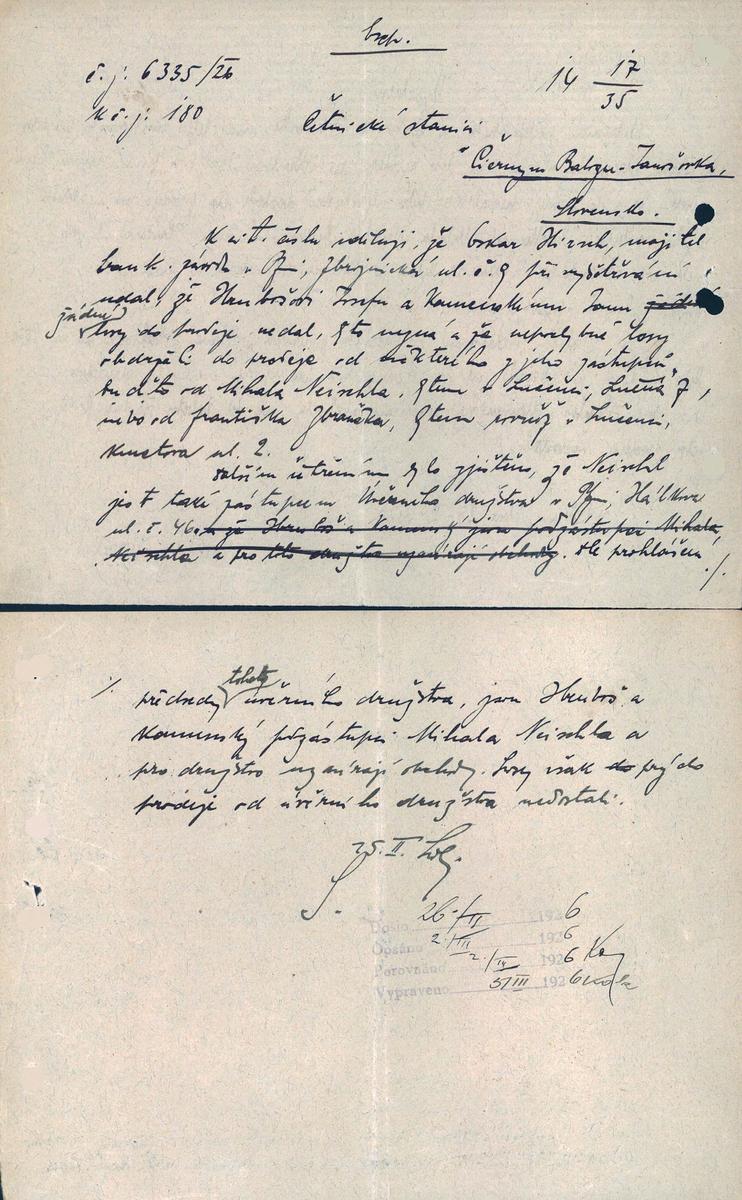 č. j. 6335/26
14 17/35
k č. j. 180
Četnické stanici
Čiernym Balogu-Janošovka,
Slovensko.
K cit. číslu sděluji, že Oskar Hirsch, majitel
bank. závodu v Brně, Zbrojnická ul. č. 9 při vyšetřování
udal, že Hrubošovi Josefu a Kamenskému Janu žádné
žádné
losy do prodeje nedal, je to nezná a že nepochybně losy
obdrželi do prodeje od některého z jeho zástupců,
buďto od Mihala Neischla, bytem v Lučenci, Lučná 7,
nebo od Františka Zbrančka, bytem rovněž v Lučenci,
Kmetova ul. 2.
Dalším šetřením bylo zjištěno, že Neischl
jest také zástupcem Úvěrního družstva v Brně, Hálkova
ul. č. 46, a že Hruboš a Kamenský jsou podzástupci Mihala
Neischla a pro toto družstvo uzavírají obchody. Dle prohlášení
./.
./.
tohoto
předsedy úvěrního družstva, jsou Hruboš a
Kamenský podzástupci Mihala Neischla a
pro družstvo uzavírají obchody. Losy však do prý do
prodeje od úvěrního družstva nedostali.
25. II.
Došlo 26./II 1926
Opsáno 2./III 1926
Porovnáno 2./III 1926
Vypraveno 5/III 1926